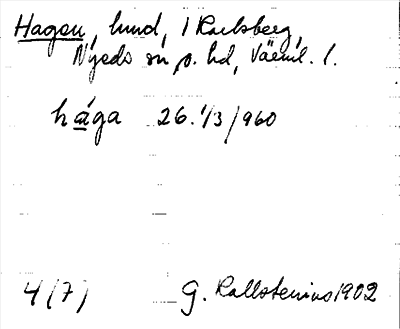 Hagen, lund, 1 Karlsberg,
Nyeds sn o. hd, Värml. l.
håga 26.1/3/960
4(7) G. Kallstenius 1902